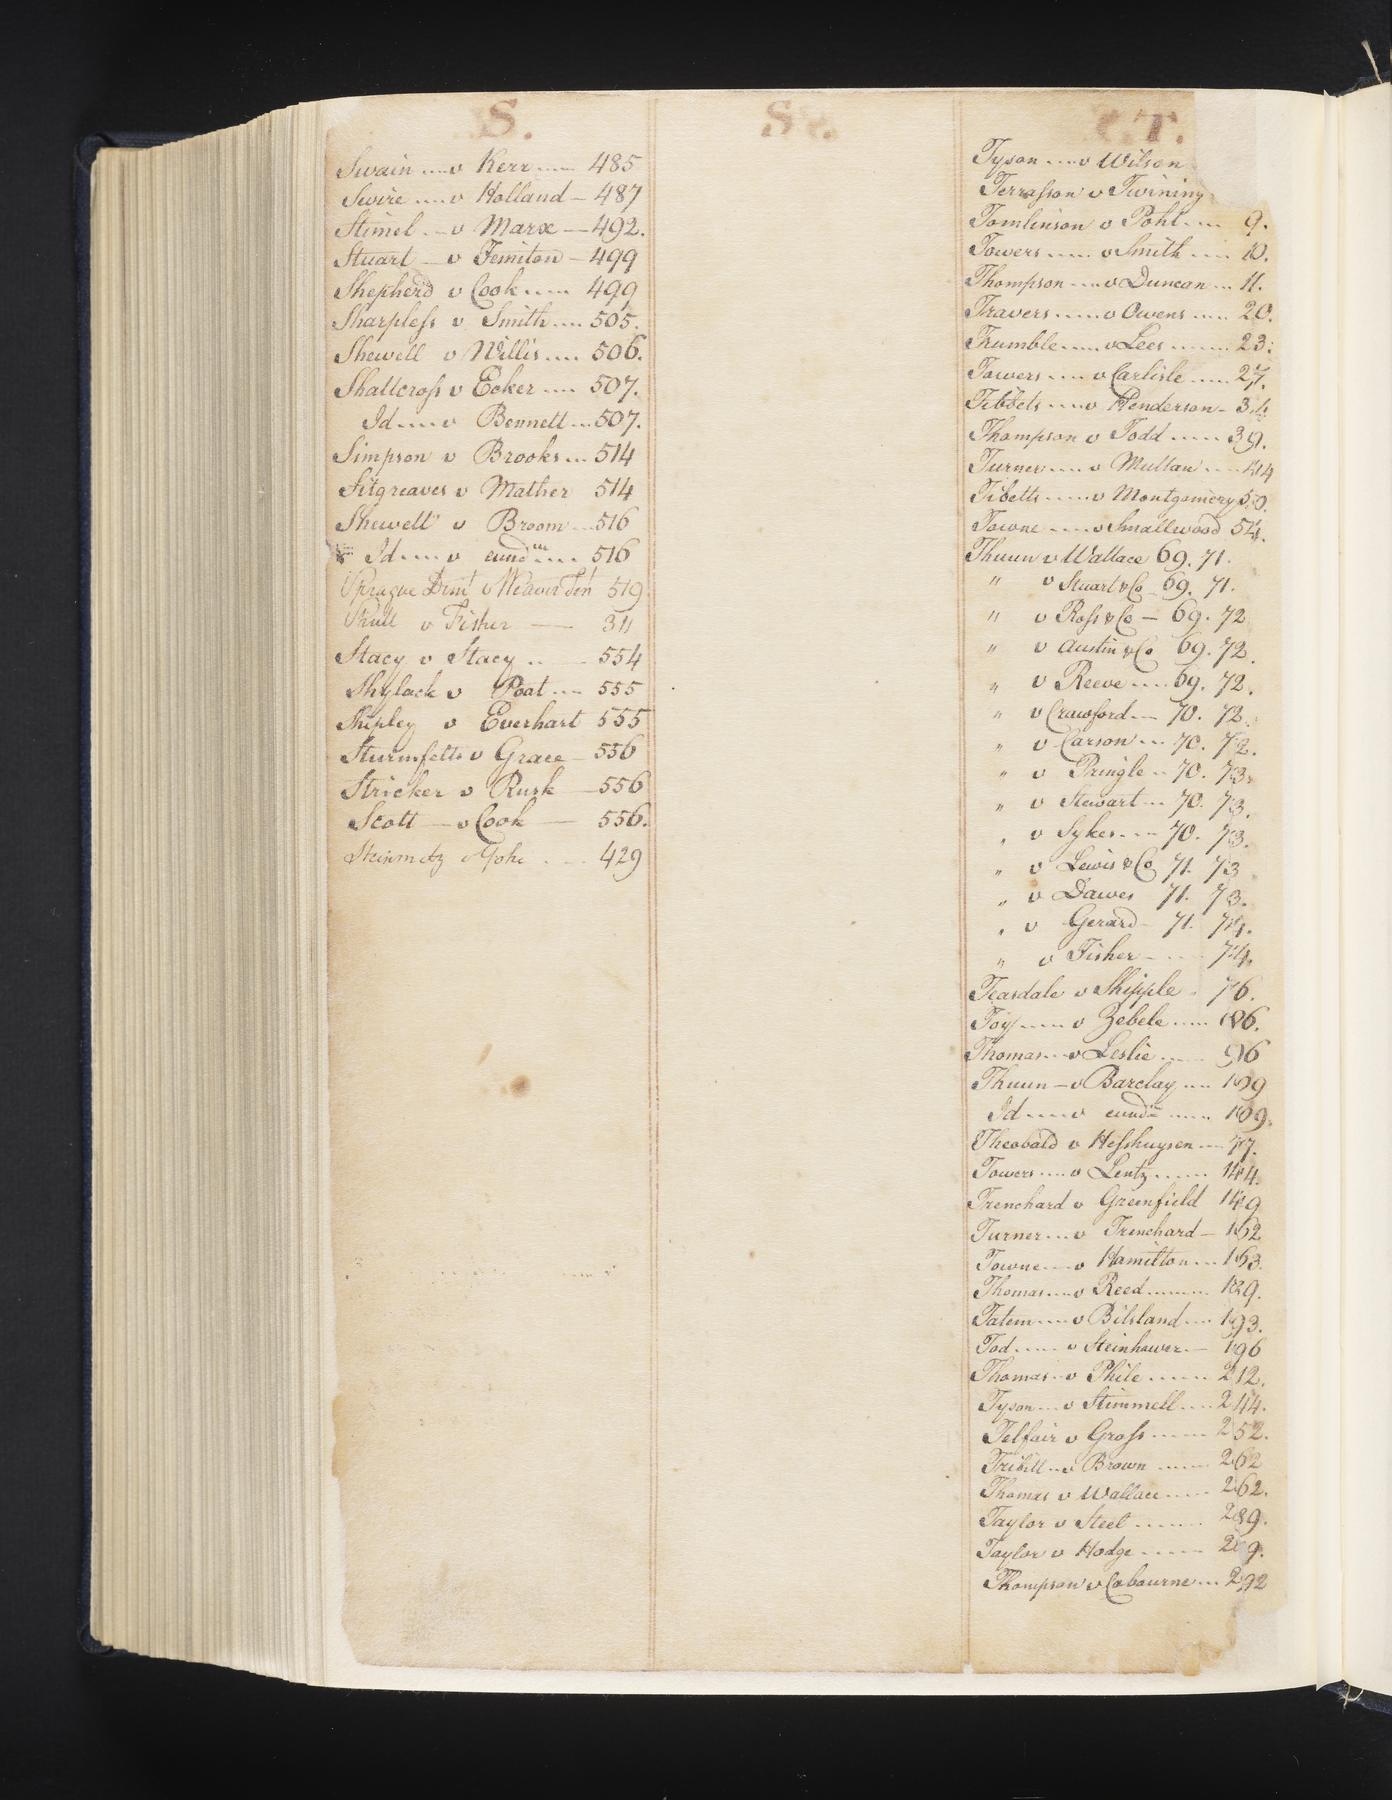 S.
Swain .... v Kerr ..... 485
Swire .... v Holland - 487
Stimel .. v Marx - 492.
Stuart - v Femiton - 499
Shepherd v Cook ..... 499
Sharpless v Smith .... 505.
Shewell v Willis .... 506.
Shallcross v Ecker .... 507.
Id .... v Bennett ... 507.
Simpson v Brooks ... 514
Sitgreaves v Mather 514
Shewell v Broom ... 516
Id .... v eundm .... 516
Sprague v Weaver 519
Skull v Fisher - 311
Stacy v Stacy .. 554
Shylack v Poat ... 555
Shipley v Everhart 555
Sturmfetts v Grace - 556
Stricker v Rusk - 556
Scott - v Cook - 556.
Steinmetz v 429
S
T.
Tyson .... v Wilson
Terrasson v Twining
Tomlinson v Pohl .... 9.
Towers ..... v Smith .... 10.
Thompson .... v Duncan ... 11.
Travers ..... v Owens ..... 20.
Trumble ..... v Lees ....... 23.
Towers .... v Carlisle ..... 27.
Tibbets .... v Henderson - 34.
Thompson v Todd ..... 39.
Turner .... v Mullan .... 44
Tibetts ..... v Montgomery 50.
Towne .... v Smallwood 54.
Thuun v Wallace 69. 71.
" v Stuart & Co - 69. 71.
" v Ross & Co - 69. 72
" v Austin & Co 69. 72.
" v Reeve .... 69. 72.
" v Crawford - 70. 72.
" v Carson ... 70. 72.
" v Pringle .. 70. 73.
" v Stewart ... 70. 73.
" v Sykes .... 70. 73.
" v Lewis & Co 71. 73
" v Dawes 71. 73.
" v Gerard - 71. 74.
" v Fisher - 74.
Teasdale v Shipple . 76.
Toy ..... v Zebele ..... 86.
Thomas ... v Leslie ..... 96
Thuun - v Barclay .... 109
Id .... v eundm ..... 109.
Theobald v Hesshuysen .... 77.
Towers .... v Lentz ...... 144.
Trenchard v Greenfield 149
Turner ... v Trenchard - 162
Towne .... v Hamilton ... 163.
Thomas .... v Reed ........ 189.
Tatem .... v Bilsland .... 193.
Tod ..... v Steinhawer - 196
Thomas .. v Phile ...... 212.
Tyson ... v Stimmell .... 244.
Telfair v Gross ...... 252.
Tribill .. v Brown ...... 262
Thomas v Wallace ..... 262.
Taylor v Steel ....... 289.
Taylor v Hodge ......
Thompson v Cabourne ... 292